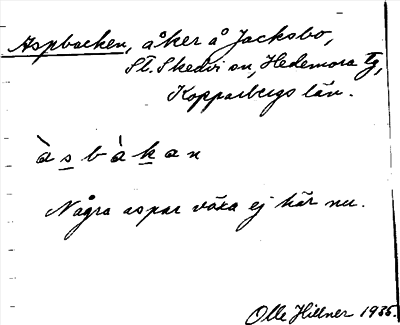 Aspbacken, åker å Jacksbo,
St. Skedvi sn, Hedemora tg,
Kopparbergs län.
àsbàkan
Några aspar växa ej här nu.
Olle Hillner 1935.